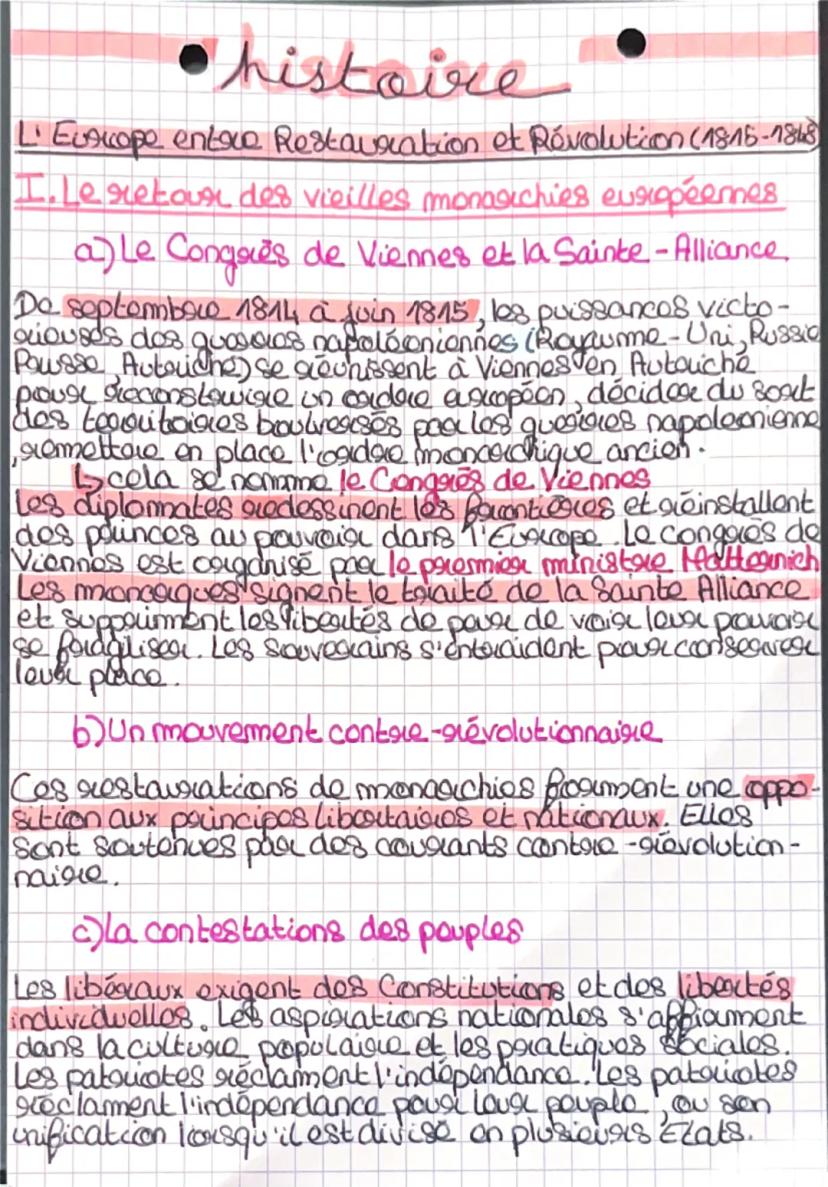 histoire
L'Europe entre Restauration et Révolution (1815-1848)
I. Le retour des vieilles monarchies européennes
a) Le Congrès de Viennes et la Sainte-Alliance
De septembre 1814 à juin 1815, les puissances victo-
rieuses des guerres napoléoniennes (Royaume-Uni, Russie
Prusse Autriche) se réunissent à Viennes en Autriche
pour reconstruire un ordre européen, décider du sort
des territoires boulversés par les guerres napoleonienne
, remettre en place l'ordre monarchique ancien.
↳ cela se nomme le Congrès de Viennes
Les diplomates redessinent les frontières et réinstallent
des princes au pouvoir dans l'Europe. Le congrès de
Viennes est organisé par le premier ministre Metternich
Les monarques signent le traité de la Sainte Alliance
et suppriment les libertés de peur de voir leur pouvoir
se fragiliser. Les souverains s'entraident pour conserver
leur place.
b) Un mouvement contre-révolutionnaire
Ces restaurations de monarchies forment une oppo-
sition aux principes libertaires et nationaux. Elles
sont soutenues par des courants contre-révolution-
naire.
c) la contestations des peuples
Les libéraux exigent des Constitutions et des libertés
individuelles. Les aspirations nationales s'affirment
dans la culture populaire et les pratiques sociales.
Les patriotes réclament l'indépendance. Les patriotes
réclament l'indépendance pour leur peuple, ou son
unification lorsqu'il est divisé en plusieurs Etats.